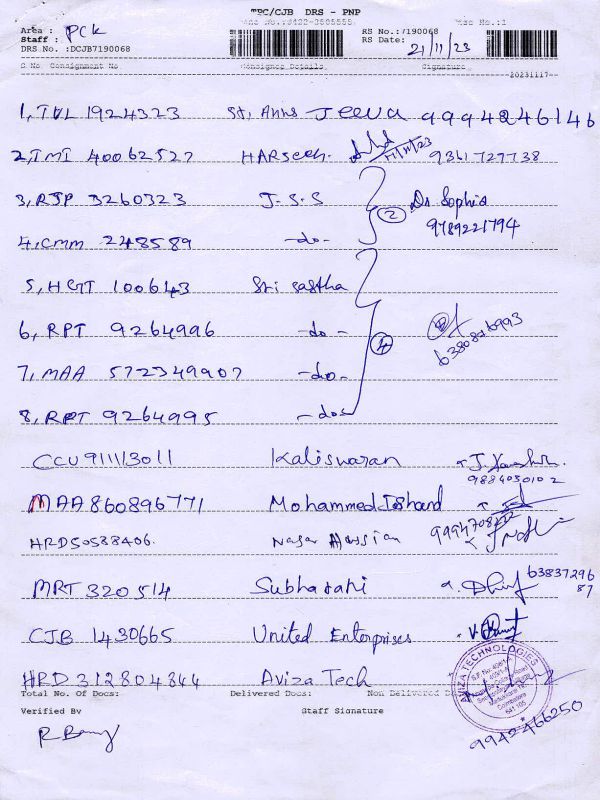 TPC/CJB DRS - PNP
Area : PCK
Staff :
DRS No. :DCJB7190068
RS No.:/190068
RS Date: 21/11/23
S No Consignment No Consignee Details Signature
20231117--
1, TVL 1924323 St, Anns Jeeva 9994246146
2, TMT 40062527 HARSeeh. 9361727738
3, RJP 3260323 J-S-S 2 Dr Sophia
9789221794
4, CMM 248589 -do-
5, HGT 100643 Sri Sastha
6, RPT 9264996 -do- 4 6380876993
7, MAA 572349907 -do-
8, RPT 9264995 -do-
CCU911113011 Kaliswaran
9884030102
MAA860896771 Mohammed
HRD50538406. Nagar
MRT 320514 Subharahi 63837296
87
CJB 1430665 United Enterprises
HRD 312804844 Aviza Tech
AVIZA TECHNOLOGIES
Coimbatore
641 105
Total No. Of Docs: Delivered Docs: Non Delivered
Verified By Staff Signature
9942466250